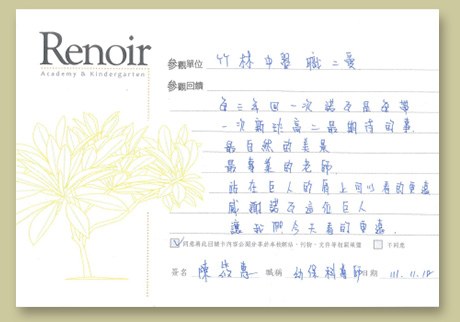 Renoir
Academy & Kindergarten
參觀單位 竹林中學 職二愛
參觀回饋
每三年回一次諾瓦是每帶
一次新班高二最期待的事
最自然的美景
最專業的老師.
站在巨人的肩上可以看的更遠
感謝諾瓦這個巨人
讓我們今天看的更遠.
同意將此回饋卡內容公開分享於本校網站、刊物、文件等相關媒體 不同意
簽名 陳 惠 職稱 幼保科導師 日期 111.11.18